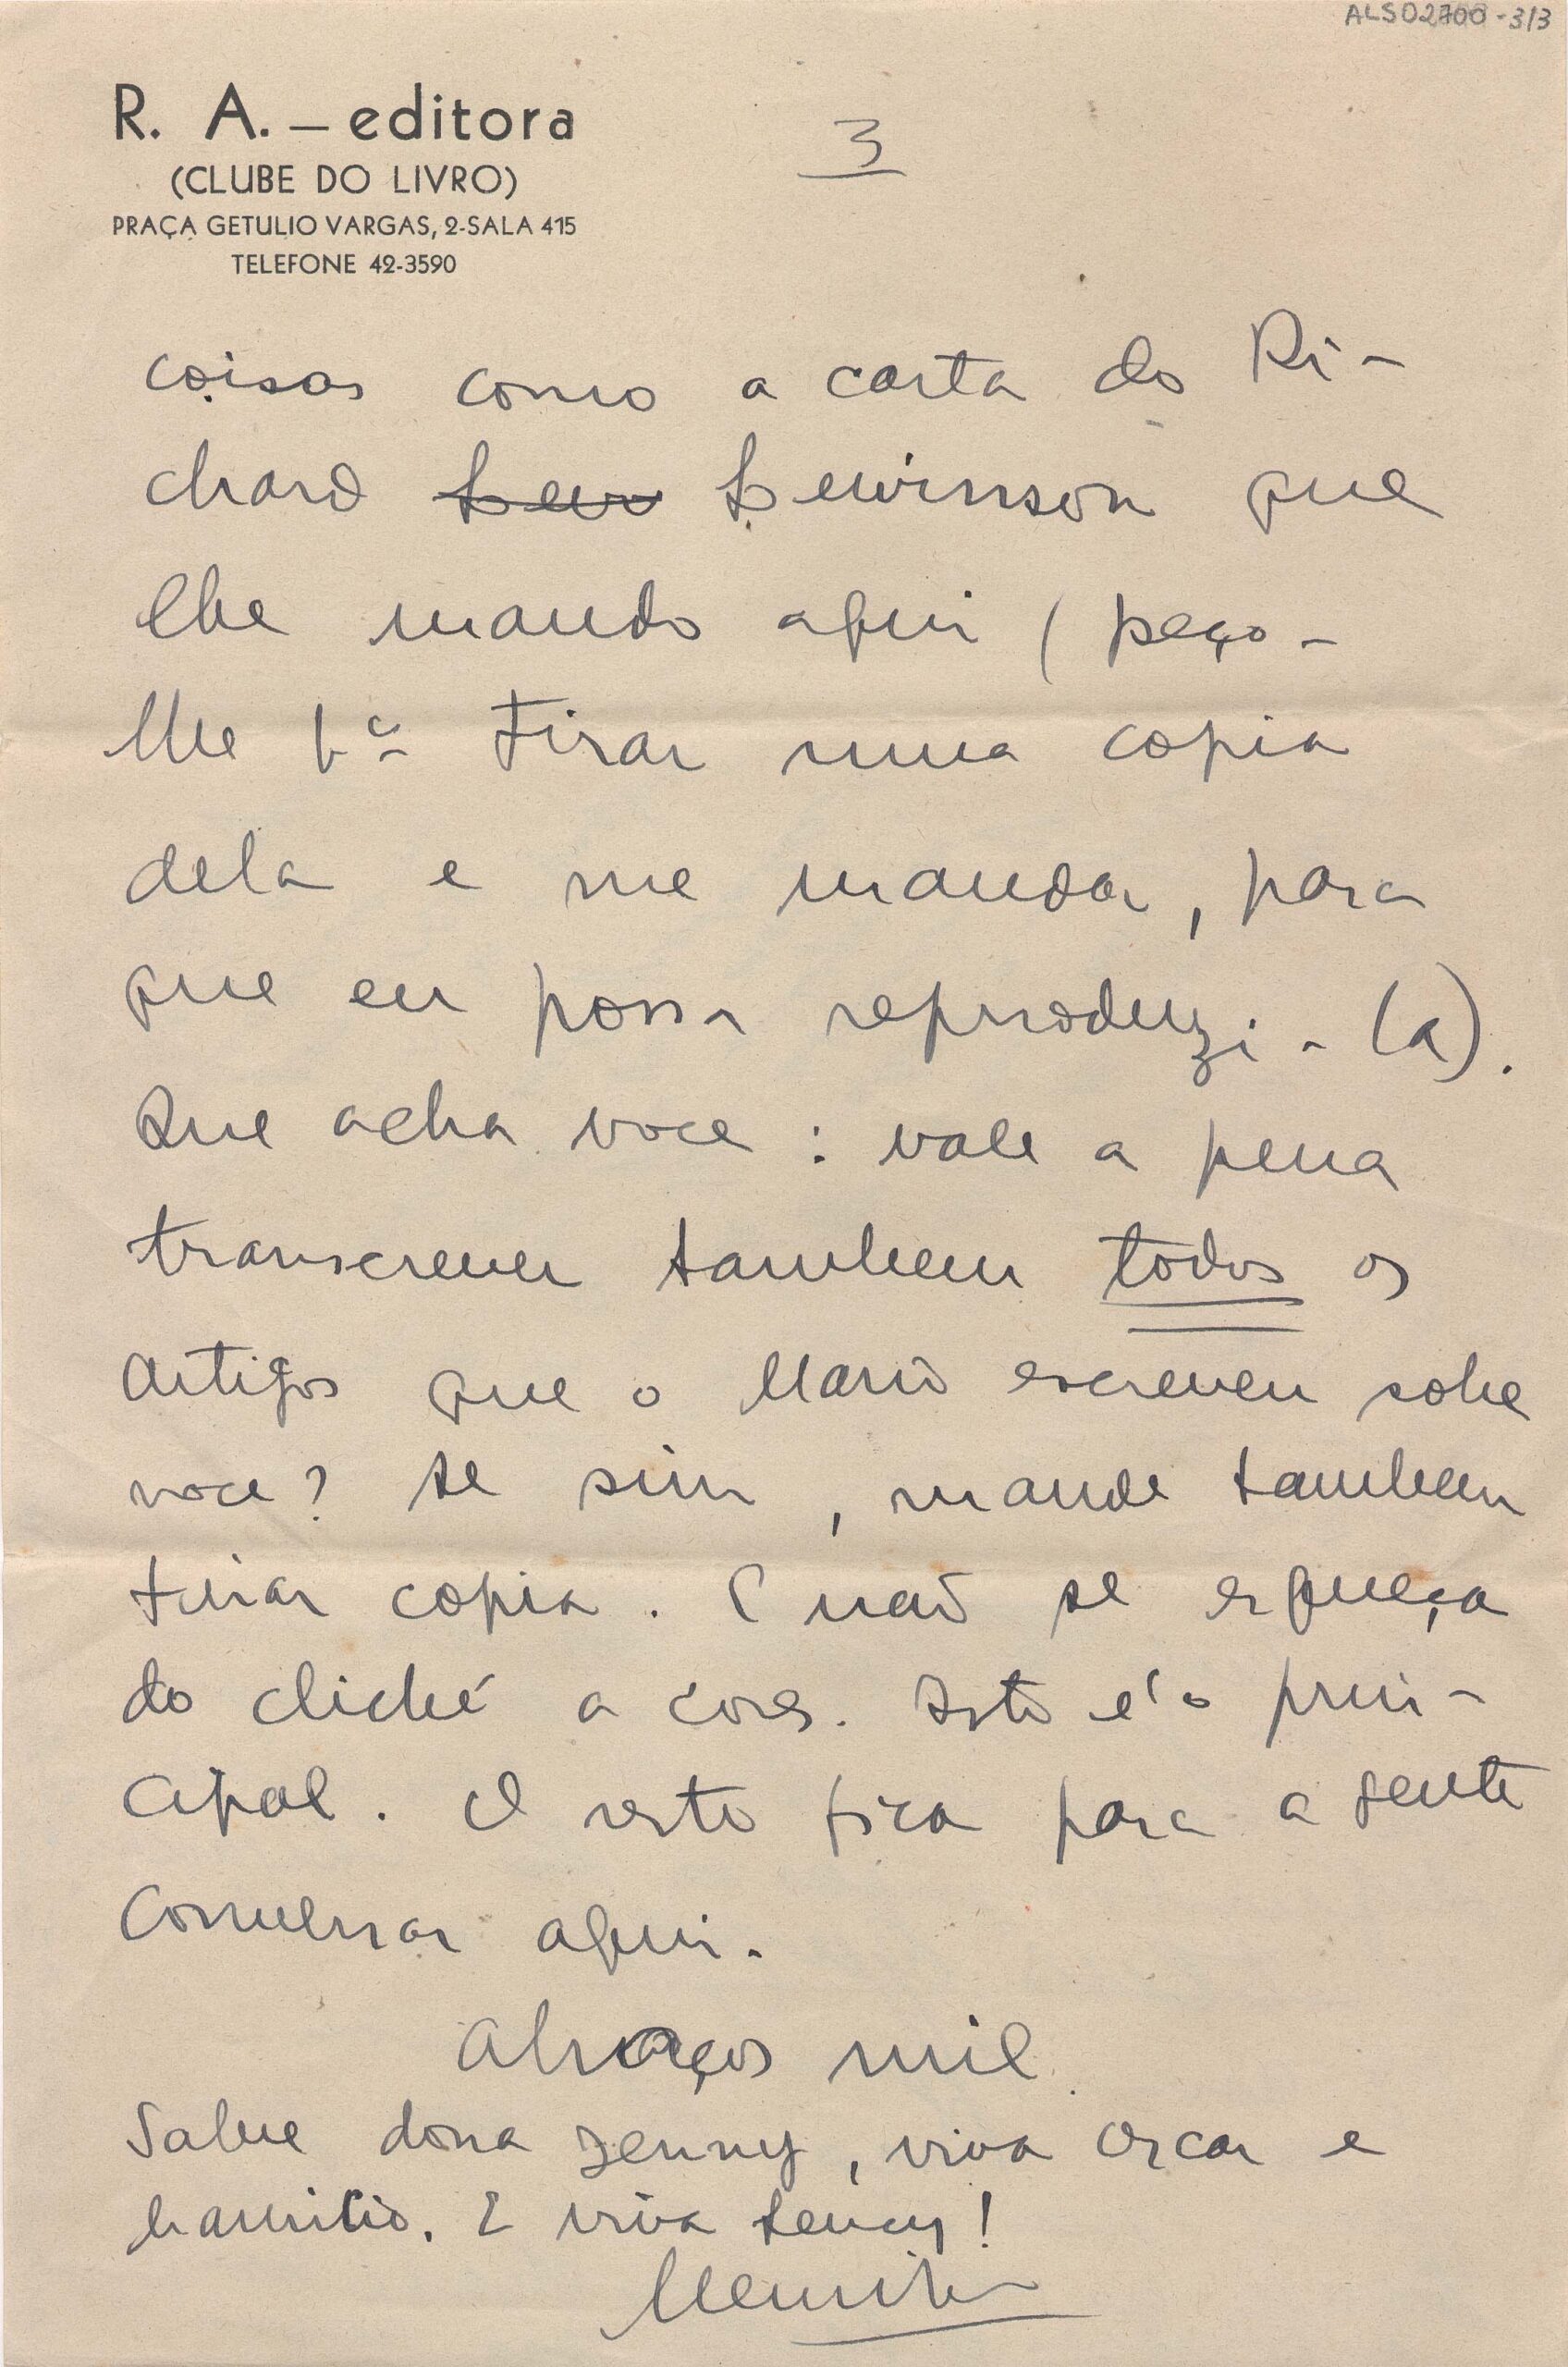 ALS02700-3/3
R. A. — editora
(CLUBE DO LIVRO)
PRAÇA GETULIO VARGAS, 2-SALA 415
TELEFONE 42-3590
3
coisas como a carta do Ri-
chard Lew Lewinson que
lhe mando aqui (peço-
lhe pª tirar uma copia
dela e me mandar, para
que eu possa reproduzi-la).
Que acha voce: vale a pena
transcrever tambem todos os
artigos que o Mario escreveu sobre
voce? Se sim, mande tambem
tirar copia. E não se esqueça
do cliché a cores. Isto é o prin-
cipal. O resto fica para a gente
conversar aqui.
Abraços mil
Salve dona Jenny, viva Oscar e
Mauricio. E viva